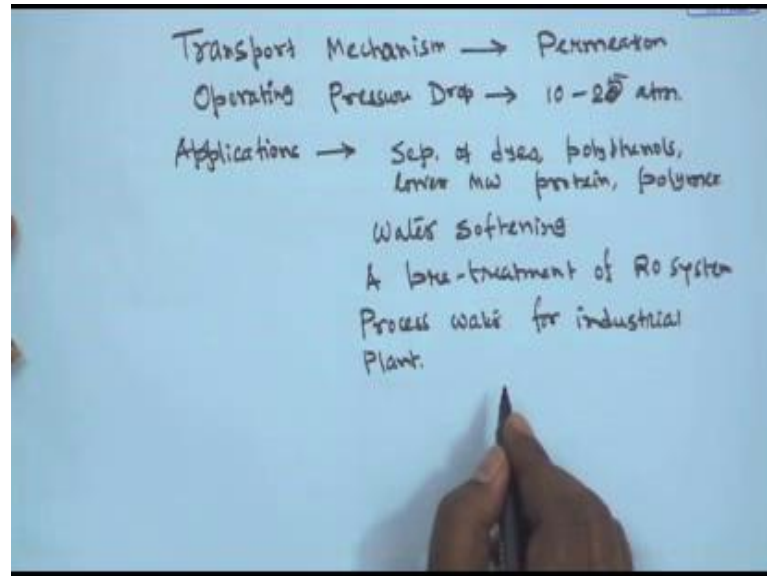 Transport Mechanism → Permeation
Operating Pressure Drop → 10-25 atm.
Applications → Sep. of dyes, polyphenols,
lower MW protein, polymer
Water softening
A pre-treatment of RO system
Process water for industrial
Plant.